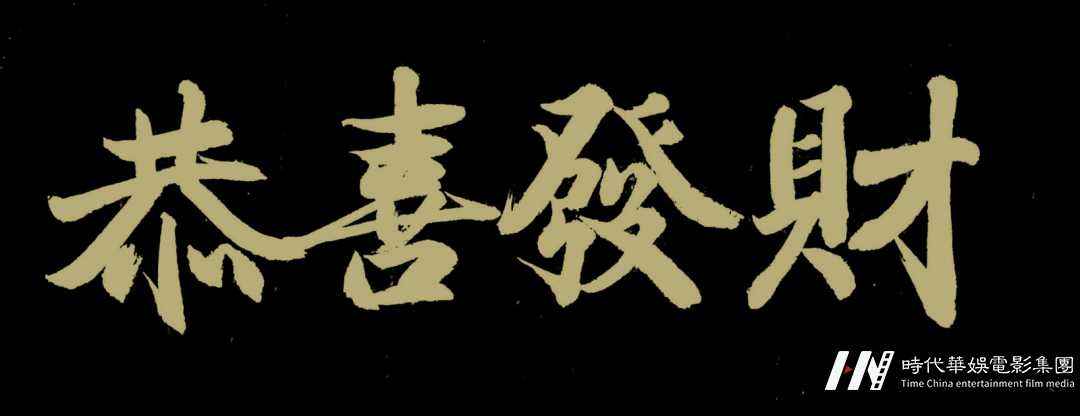 恭喜發財
時代華娛電影集團
Time China entertainment film media